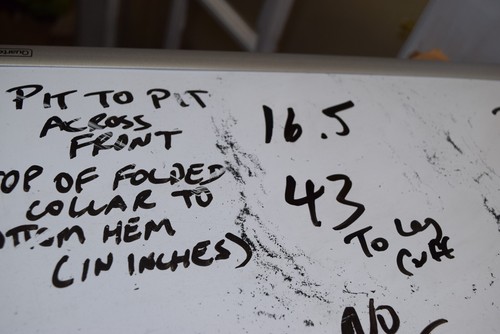 Quartet
PIT TO PIT 16.5
ACROSS
FRONT
OP OF FOLDED 43
COLLAR TO To Leg
TTOM HEM Cuff
(IN INCHES)
NO